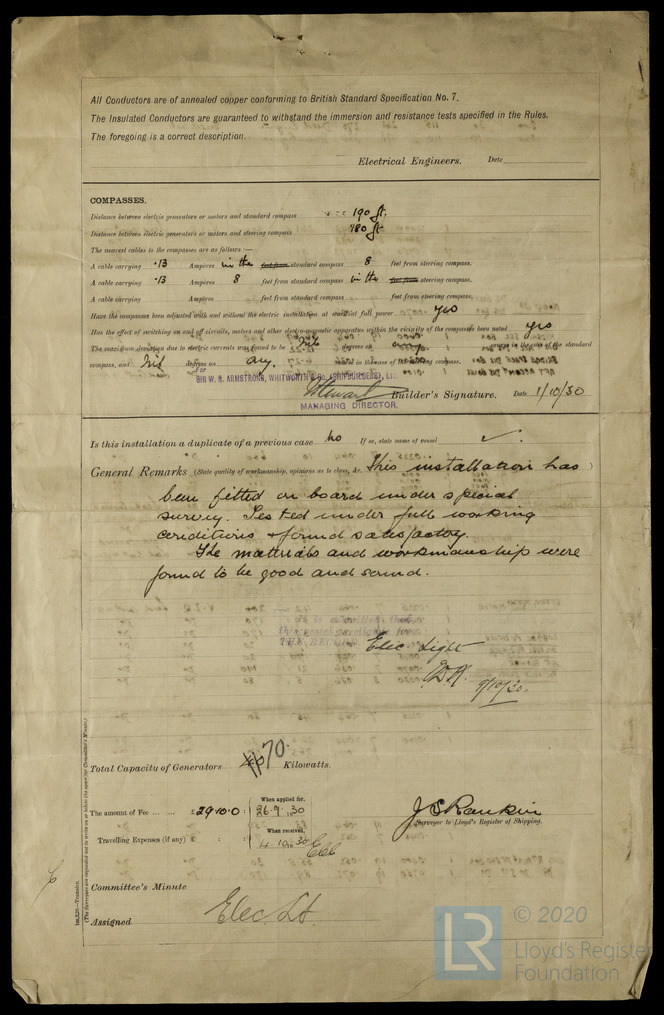 All Conductors are of annealed copper conforming to British Standard Specification No. 7.
The Insulated Conductors are guaranteed to withstand the immersion and resistance tests specified in the Rules.
The foregoing is a correct description.
Electrical Engineers. Date
COMPASSES.
Distance between electric generators or motors and standard compass 190 ft.
Distance between electric generators or motors and steering compass 180 ft
The nearest cables to the compasses are as follows:—
A cable carrying .13 Amperes in the feet from standard compass 8 feet from steering compass.
A cable carrying .13 Amperes 8 feet from standard compass in the feet from steering compass.
A cable carrying Amperes feet from standard compass feet from steering compass.
Have the compasses been adjusted with and without the electric installation at work at full power yes
Has the effect of switching on and off circuits, motors and other electro-magnetic apparatus within the vicinity of the compasses been noted yes
The maximum deviation due to electric currents was found to be Nil degrees on any course in the case of the standard
compass, and Nil degrees on any course in the case of the steering compass.
For
SIR W. G. ARMSTRONG, WHITWORTH & Co. (SHIPBUILDERS), LTD
Builder's Signature. Date 1/10/30
MANAGING DIRECTOR.
Is this installation a duplicate of a previous case no If so, state name of vessel
General Remarks (State quality of workmanship, opinions as to class, &c. This installation has )
been fitted on board under special
survey. Tested under full working
conditions & found satisfactory.
The materials and workmanship were
found to be good and sound.
It is submitted that
this vessel is eligible for
THE RECORD. Elec Light
9/10/30.
Total Capacity of Generators 70 Kilowatts.
The amount of Fee ... ... £29.10.0 : When applied for, 26.9.30
Travelling Expenses (if any) £ : : When received, 4.10.30
J S Rankin
Surveyor to Lloyd's Register of Shipping.
Committee's Minute
Assigned Elec. Lt.
(The Surveyors are requested not to write on or below the space for Committee's Minute.)
LR © 2020
Lloyd's Register
Foundation